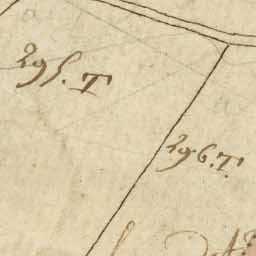 295. T
296. T.